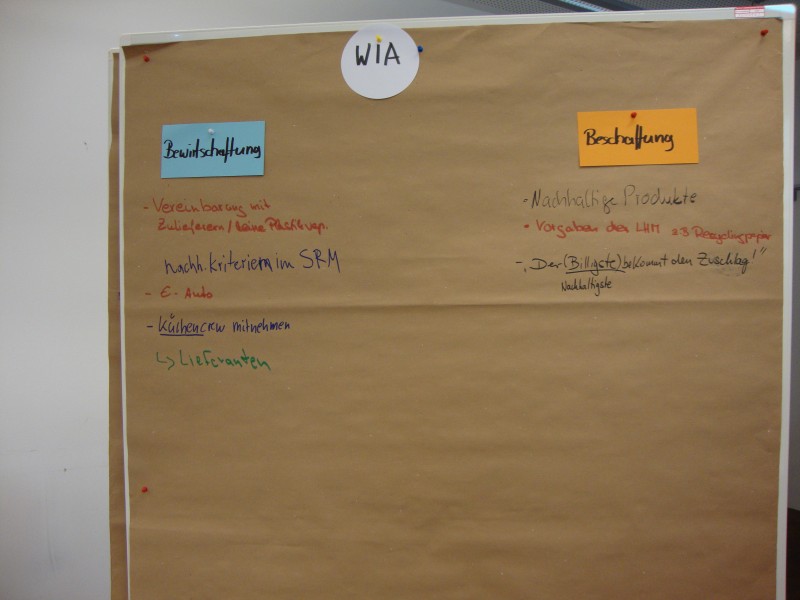 WiA
Bewirtschaftung
- Vereinbarung mit
Zulieferern / keine Plastikverp.
nachh. Kriterien im SRM
- E-Auto
- Küchencrew mitnehmen
↳ Lieferanten
Beschaffung
- Nachhaltige Produkte
• Vorgaben der LHM z.B Recyclingpapier
- „Der (Billigste) bekommt den Zuschlag!“
Nachhaltigste